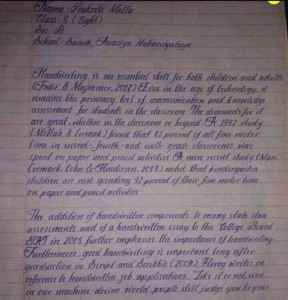 Name: 
Class: 8 (Eight)
Sec: B
School: Vidyalaya
Handwriting is an essential skill for both children and adults
(Feder & Majnemer, 2007). Even in the age of technology, it
remains the primary tool of communication and knowledge
assessment for students in the classroom. The demands for it
are great, whether in the classroom or beyond. A 1992 study
(McHale & Cermak) found that 85 percent of all fine motor
time in second- fourth- and sixth- grade classrooms was
spent on paper and pencil activities. A more recent study (Marr,
Cermak, Cohn & Henderson, 2003) noted that kindergarten
children are now spending 42 percent of their fine motor time
on paper and pencil activities.
The addition of handwritten components to many state
assessments and of a handwritten essay to the College Board
SAT in 2005 further emphasize the importance of handwriting.
Furthermore, good handwriting is important long after
graduation
reference to handwritten job applications. "Like it or not, even
in our machine-driven world, people still judge you by your